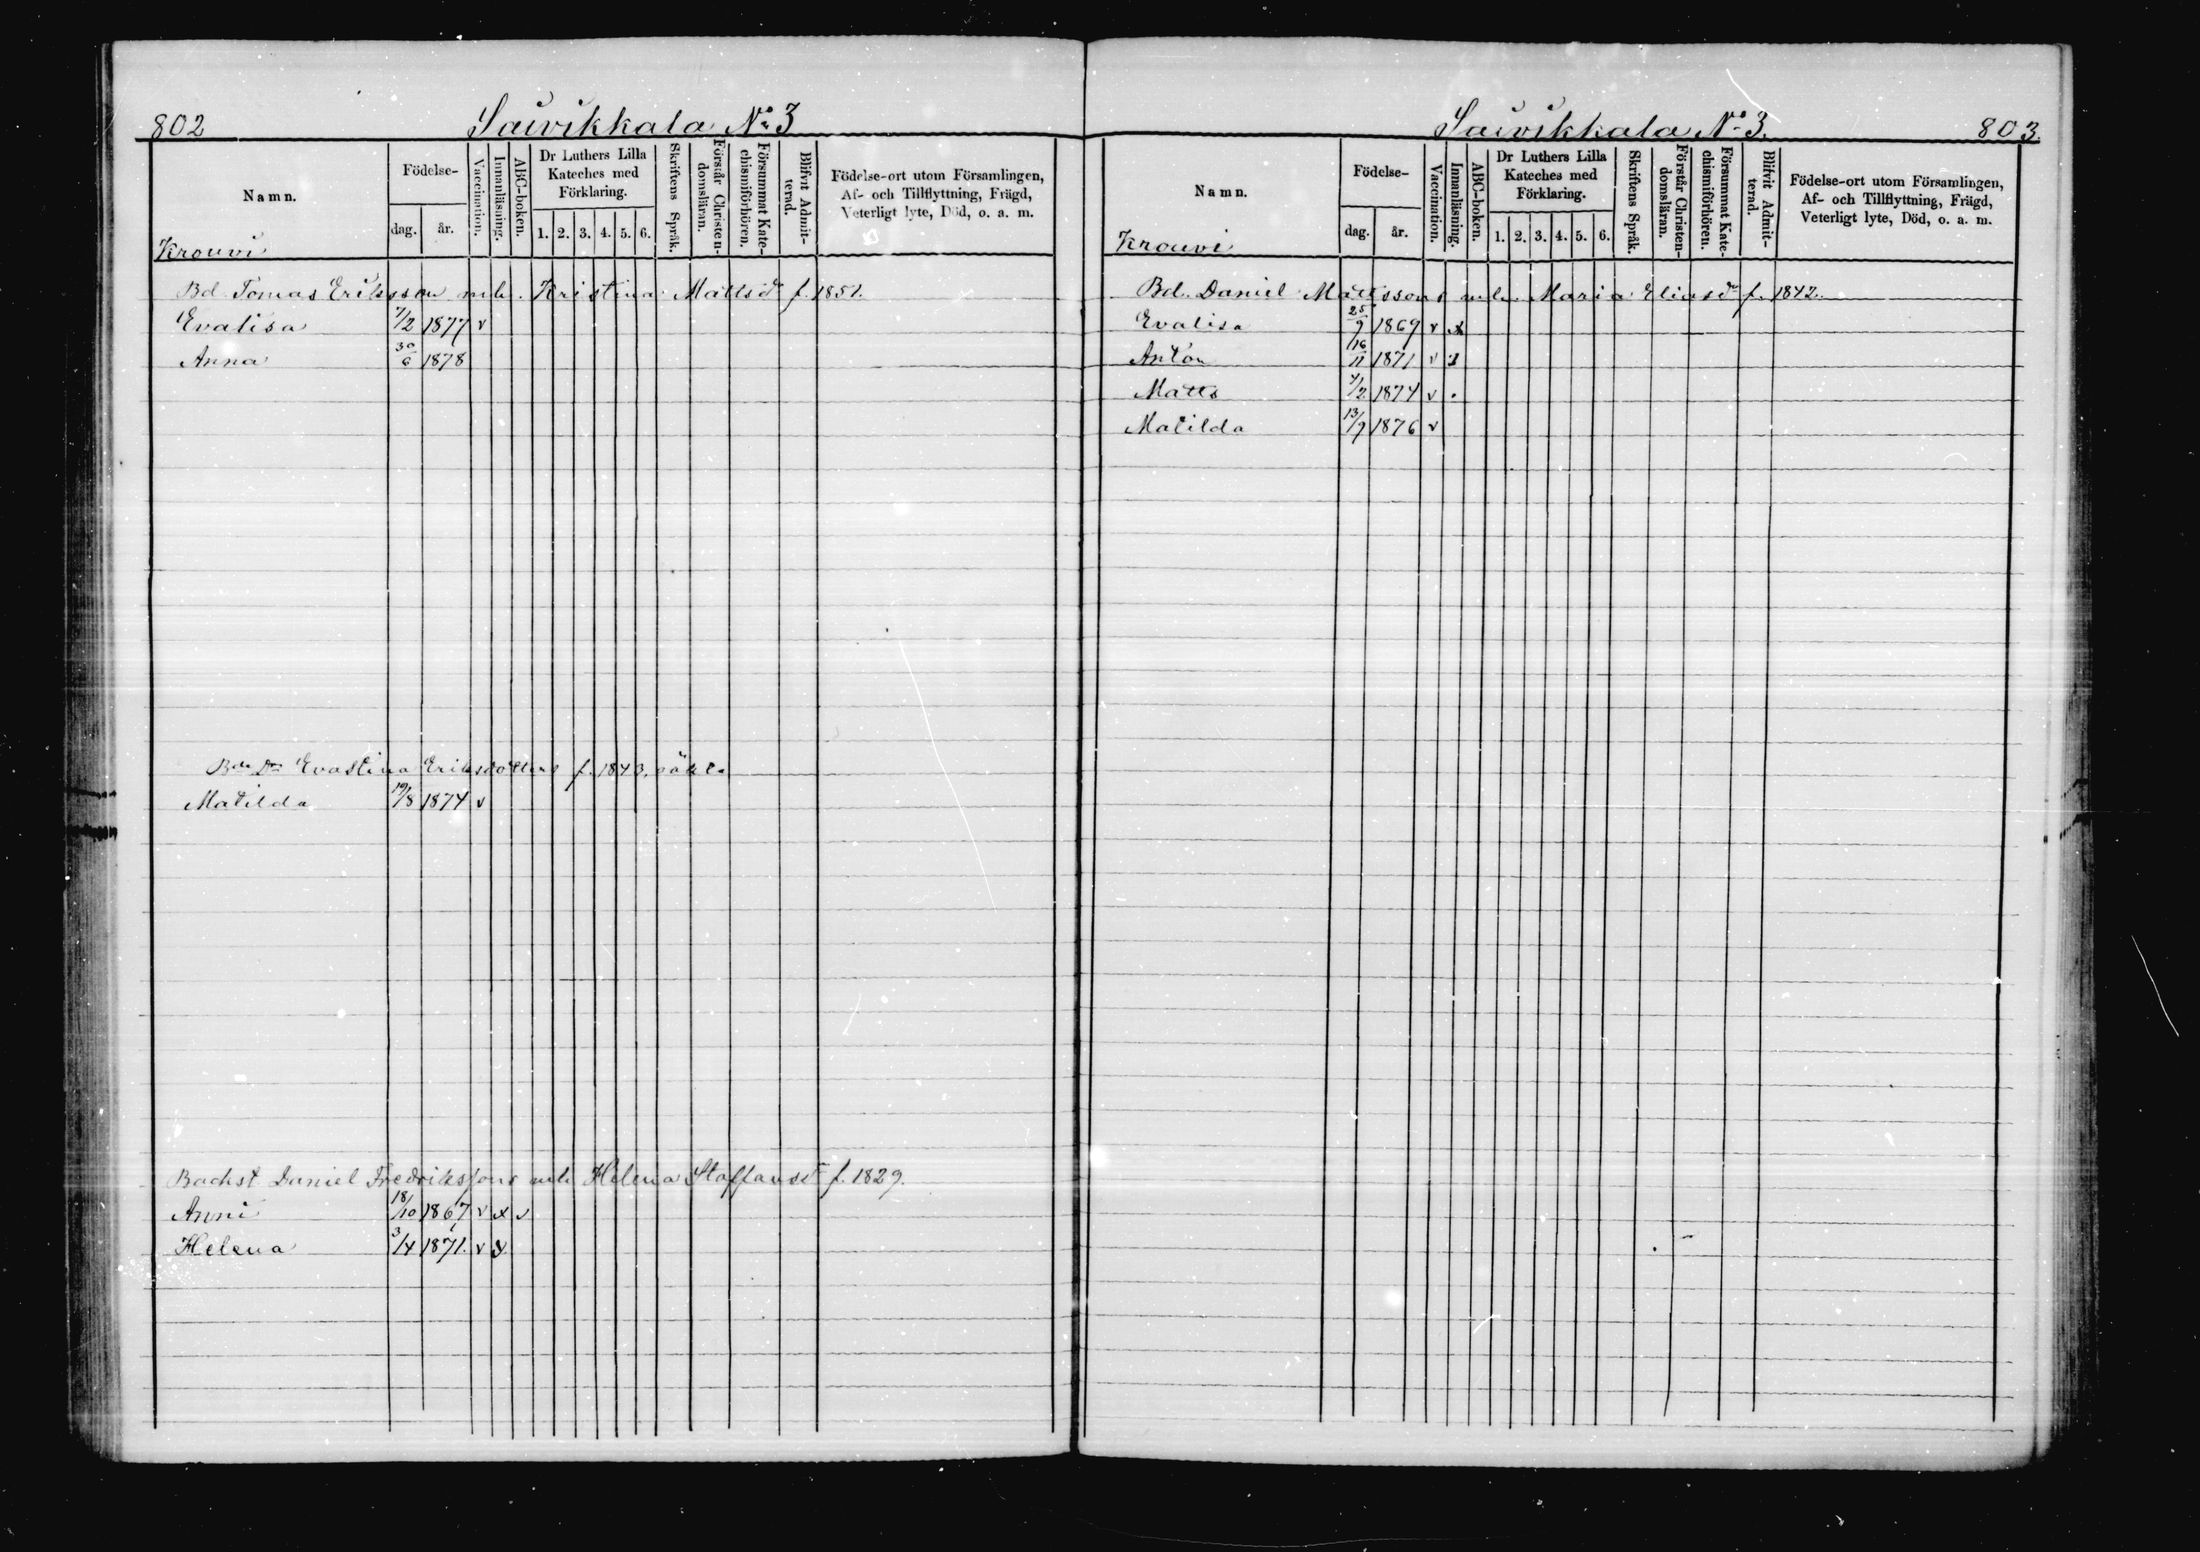 802 Saivikkala No 3
Namn. Födelse- dag. år. Vaccination. Innanläsning. ABC-boken. Dr Luthers Lilla Kateches med Förklaring. 1. 2. 3. 4. 5. 6. Skriftens Språk. Förstår Christen-domsläran. Försummat Kate-chismiförhören. Blifvit Admit-terad. Födelse-ort utom Församlingen, Af- och Tillflyttning, Frägd, Veterligt lyte, Död, o. a. m.
Krouvi
Bd. Tomas Eriksson mh. Kristina Mattsdr f. 1851.
Evalisa 7/2 1877 v
Anna 30/6 1878
Evastina Eriksdotters f. 1843,
Matilda 19/8 1874 v
Backst. Daniel Fredrikssons mh Helena Staffansdr f. 1829.
Anni 18/10 1867 v x v
Helena 3/4 1871. v x
Saivikkala No 3. 803.
Namn. Födelse- dag. år. Vaccination. Innanläsning. ABC-boken. Dr Luthers Lilla Kateches med Förklaring. 1. 2. 3. 4. 5. 6. Skriftens Språk. Förstår Christen-domsläran. Försummat Kate-chismiförhören. Blifvit Admit-terad. Födelse-ort utom Församlingen, Af- och Tillflyttning, Frägd, Veterligt lyte, Död, o. a. m.
Krouvi
Bd. Daniel Mattssons mh. Maria Eliasdr f. 1842.
Evalisa 25/9 1869 v x
Anton 16/11 1871 v x
Matts 4/2 1874 v .
Matilda 13/9 1876 v